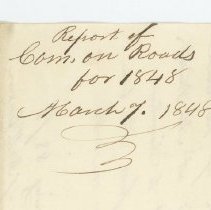 Report of
Com. on Roads
for 1848
March 7. 1848